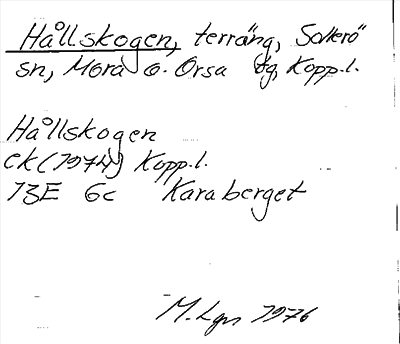 Hållskogen, terräng, Sollerö
sn, Mora o. Orsa tg, Kopp.l.
Hållskogen
ek (1974) Kopp.l.
13E 6c Karaberget
M. Lgn 1976